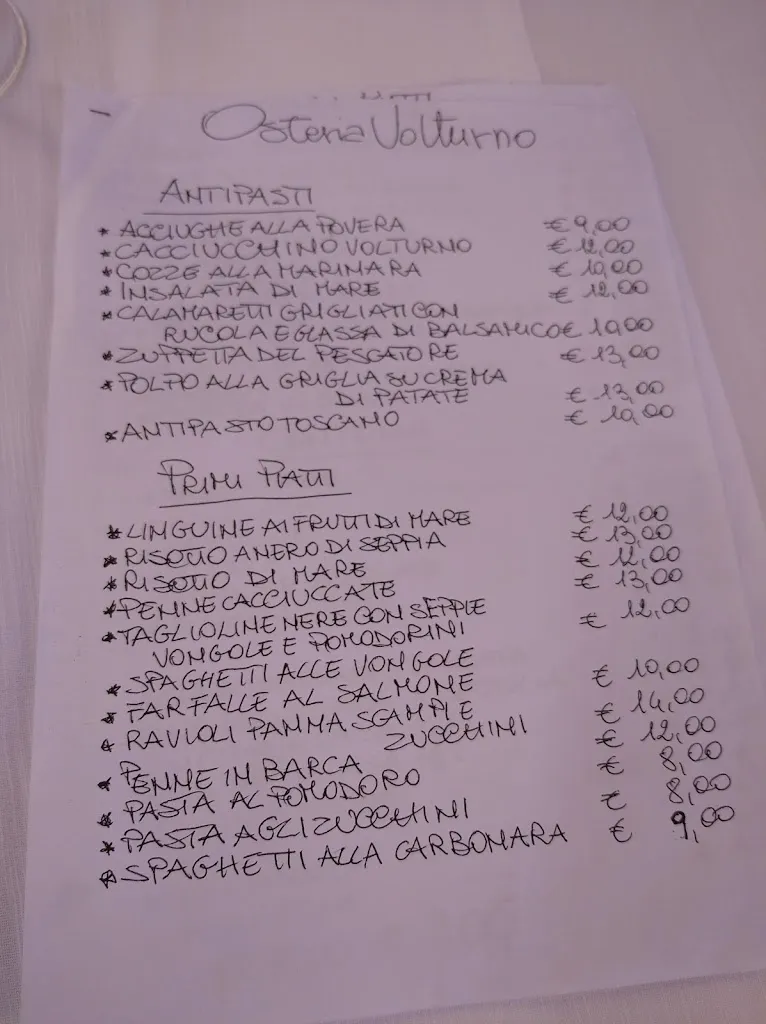 Osteria Volturno
ANTIPASTI
* ACCIUGHE ALLA POVERA € 9,00
* CACCIUCCHINO VOLTURNO € 12,00
* COZZE ALLA MARINARA € 10,00
* INSALATA DI MARE € 12,00
* CALAMARETTI GRIGLIATI CON
RUCOLA E GLASSA DI BALSAMICO € 10,00
* ZUPPETTA DEL PESCATORE € 13,00
* POLPO ALLA GRIGLIA SU CREMA
DI PATATE € 13,00
* ANTIPASTO TOSCANO € 10,00
PRIMI PIATTI
* LINGUINE AI FRUTTI DI MARE € 12,00
* RISOTTO A NERO DI SEPPIA € 13,00
* RISOTTO DI MARE € 12,00
* PENNE CACCIUCCATE € 13,00
* TAGLIOLINE NERE CON SEPPIE € 12,00
VONGOLE E POMODORINI
* SPAGHETTI ALLE VONGOLE
* FARFALLE AL SALMONE € 10,00
* RAVIOLI PANNA SCAMPI E € 14,00
ZUCCHINI
* PENNE IN BARCA € 12,00
* PASTA AL POMODORO € 8,00
* PASTA AGLI ZUCCHINI € 8,00
* SPAGHETTI ALLA CARBONARA € 9,00